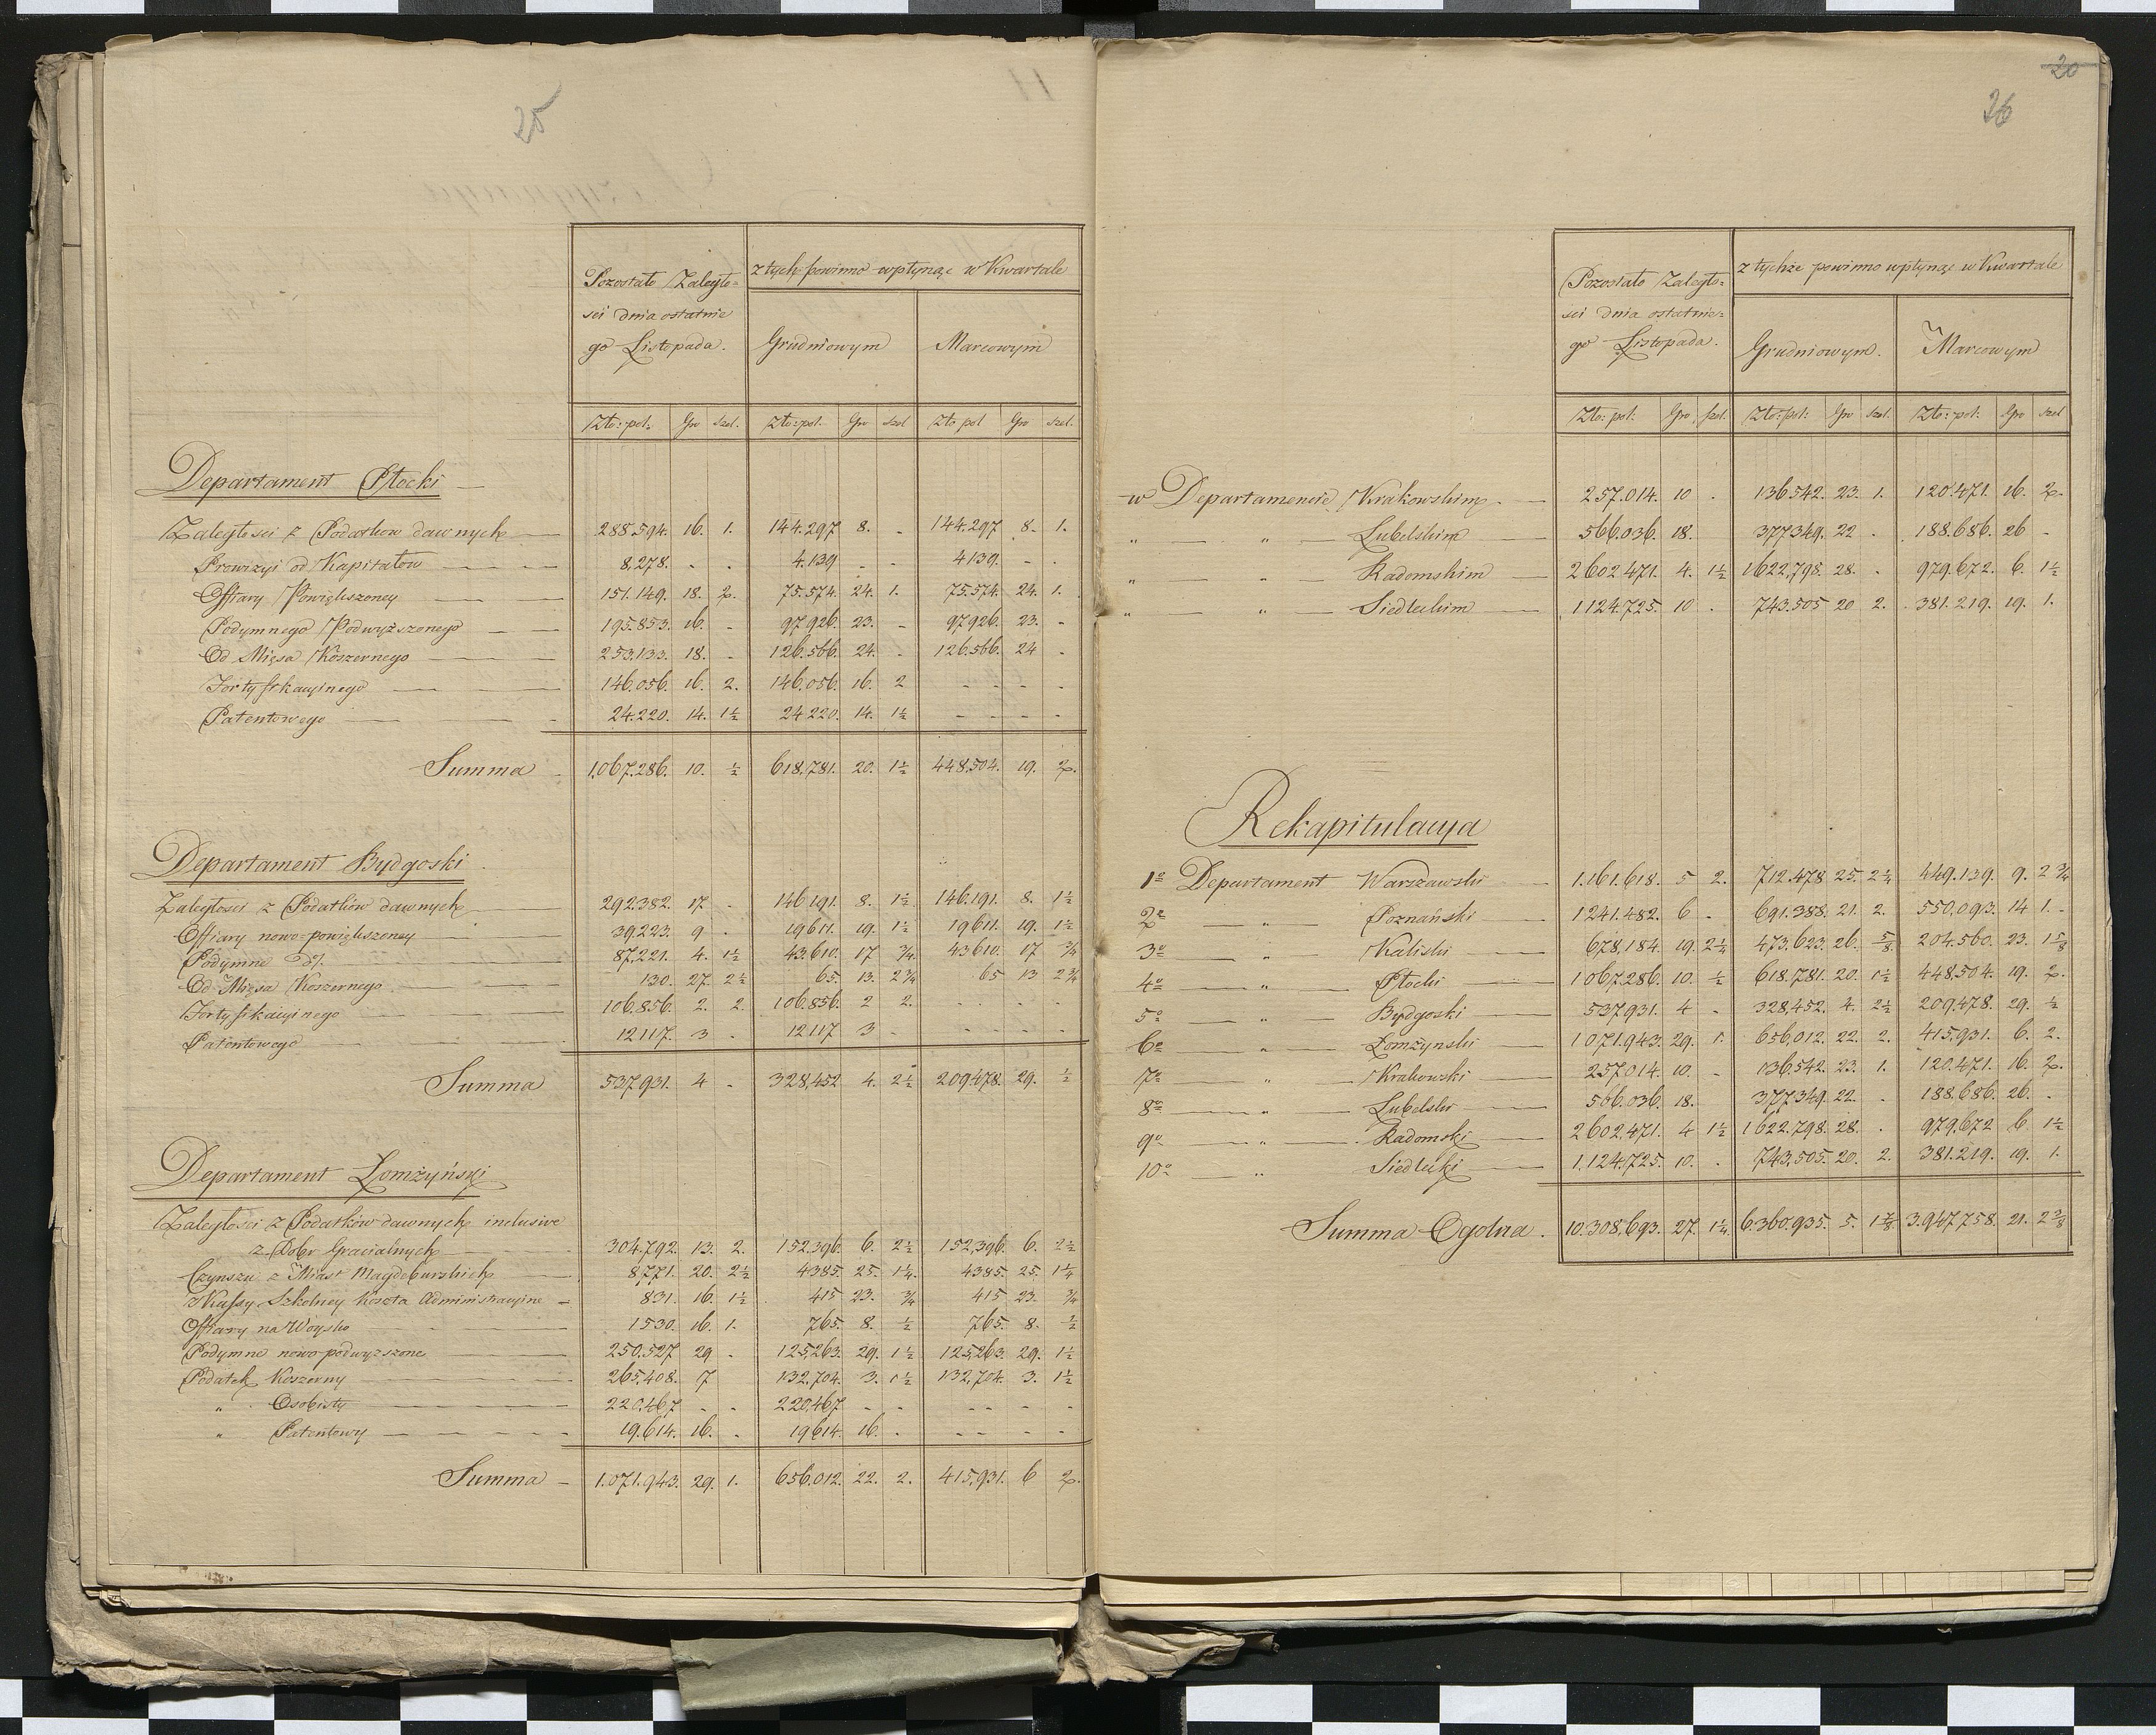 25
Pozostało Zaległo=
ści dnia ostatnie
go Listopada.
z tych powinno wpłynąć w Kwartale
Grudniowym Marcowym
Zło: pol: Gro szel. Zło: pol. Gro szel Zło pol Gro szel.
Departament Płocki
Zaległości z Podatków dawnych 288.594. 16. 1. 144.297 8. - 144.297 8. 1.
Prowizyi od Kapitałów 8,278. - - 4.139 - - 4139. - -
Offiary Powiększoney 151.149. 18. 2. 75.574. 24. 1. 75.574. 24. 1.
Podymnego Podwyższonego 195.853. 16. - 97926. 23. - 97926. 23. -
Od Mięsa Koszernego 253.133. 18. - 126.566. 24. - 126.566. 24 -
Fortyfikacyinego 146.056. 16. 2. 146.056. 16. 2 - - - -
Patentowego 24.220. 14. 1½ 24220. 14. 1½ - - - -
Summa 1,067.286. 10. ½ 618,781. 20. 1½ 448,504. 19. 2.
Departament Bydgoski
Zaległości z Podatków dawnych 292.382. 17 - 146191. 8. 1½ 146.191. 8. 1½
Offiary nowo=powiększoney 39,223. 9 - 19611. 19. 1½ 19611. 19. 1½
Podymne d⁰/. 87,221. 4. 1½ 43.610. 17 ¾ 43610. 17 ¾
Od Mięsa Koszernego 130. 27. 2½ 65. 13. 2¾ 65 13 2¾
Fortyfikacyinego 106.856. 2. 2. 106.856. 2 2. - - - -
Patentowego 12117. 3 - 12117 3 - - - - -
Summa 537,931. 4 - 328,452 4. 2½ 209,478. 29. ½
Departament Łomżyński
Zaległości z Podatków dawnych inclusive
z Dobr Gracialnych 304.792. 13. 2. 152.396. 6. 2½ 152,396. 6. 2½
Czynszu z Miast Magdeburskich 8,771. 20. 2½ 4385. 25. 1¼. 4385. 25. 1¼
Kassy Szkolney Koszta Administracyine 831. 16. 1½ 415 23. ¾ 415 23. ¾
Offiary na Woysko 1530. 16. 1. 765. 8. ½ 765. 8. ½
Podymne nowo podwyższone 250.527 29 - 125,263. 29. 1½ 125,263. 29. 1½
Podatek Koszerny 265.408. 7 132,704. 3. 1½ 132,704. 3. 1½
" Osobisty 220.467 - - 220467 - - - - - -
" Patentowy 19.614. 16. - 19614. 16. - - - - -
Summa 1.071.943. 29. 1. 656.012. 22. 2. 415,931. 6 2.
20
26
Pozostało Zaległo=
ści dnia ostatnie=
go Listopada.
z tychże powinno wpłynąć w Kwartale
Grudniowym. Marcowym
Zło: pol: Gro szel. Zło: pol: Gro szel. Zło: pol: Gro szel
w Departamencie Krakowskim 257.014. 10 - 136.542. 23. 1. 120.471. 16. 2.
" " Lubelskim 566.036. 18. 377349. 22 - 188.686. 26 -
" " Radomskim 2602471. 4. 1½ 1622,798. 28. - 979.672. 6. 1½
" " Siedleckim 1124.725. 10 - 743.505 20 2. 381.219. 19. 1.
Rekapitulacya
1º Departament Warszawski 1.161.618. 5 2. 712.478 25. 2¼ 449.139. 9. 2¾
2º " Poznański 1241.482. 6 - 691.388. 21. 2. 550,093. 14 1. -
3º " Kaliski 678,184. 19. 2¼ 473,623. 26. ⅝ 204.560. 23. 1⅝
4º " Płocki 1067.286. 10. ½ 618.781. 20. 1½ 448.504. 19. 2.
5º " Bydgoski 537931. 4 - 328,452. 4. 2½ 209,478. 29. ½
6º " Łomżynski 1071.943. 29. 1. 656,012. 22. 2. 415,931. 6. 2.
7º " Krakowski 257014. 10. - 136.542. 23. 1. 120.471. 16. 2.
8º " Lubelski 566.036. 18. 377349. 22. - 188.686. 26. -
9º " Radomski 2602,471. 4 1½ 1622.798. 28. - 979,672 6. 1½
10º " Siedlecki 1,124.725. 10. - 743,505. 20. 2. 381.219. 19. 1.
Summa Ogolna. 10.308,693. 27. 1¼. 6.360.935. 5. 1⅞ 3.947.758. 21. 2⅜